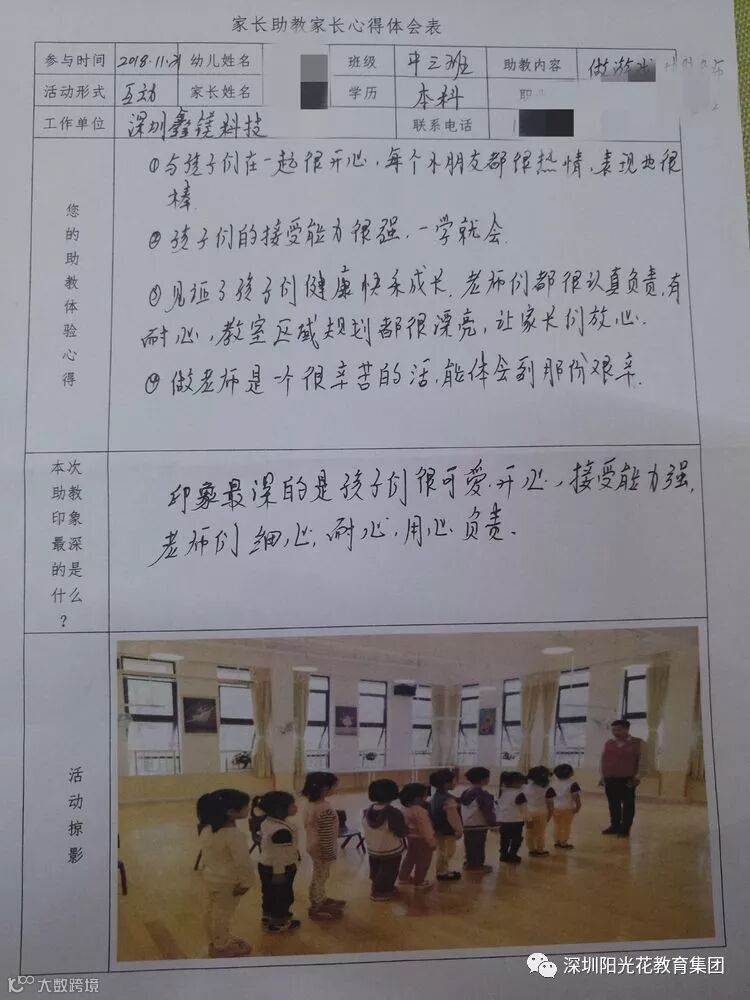 家长助教家长心得体会表
参与时间 2018.11.21 幼儿姓名 班级 中三班 助教内容 做游戏
活动形式 互动 家长姓名 学历 本科 职
工作单位 深圳鑫镁科技 联系电话
您的助教体验心得
①与孩子们在一起很开心，每个小朋友都很热情，表现也很
棒.
②孩子们的接受能力很强，一学就会.
③见证了孩子们健康快乐成长，老师们都很认真负责，有
耐心，教室区域规划都很漂亮，让家长们放心.
④做老师是一个很辛苦的活，能体会到那份艰辛.
本次
助教
印象
最深
的是
什么
？
印象最深的是孩子们很可爱.开心，接受能力强，
老师们细心，耐心，用心负责.
活动掠影
深圳阳光花教育集团
大数跨境